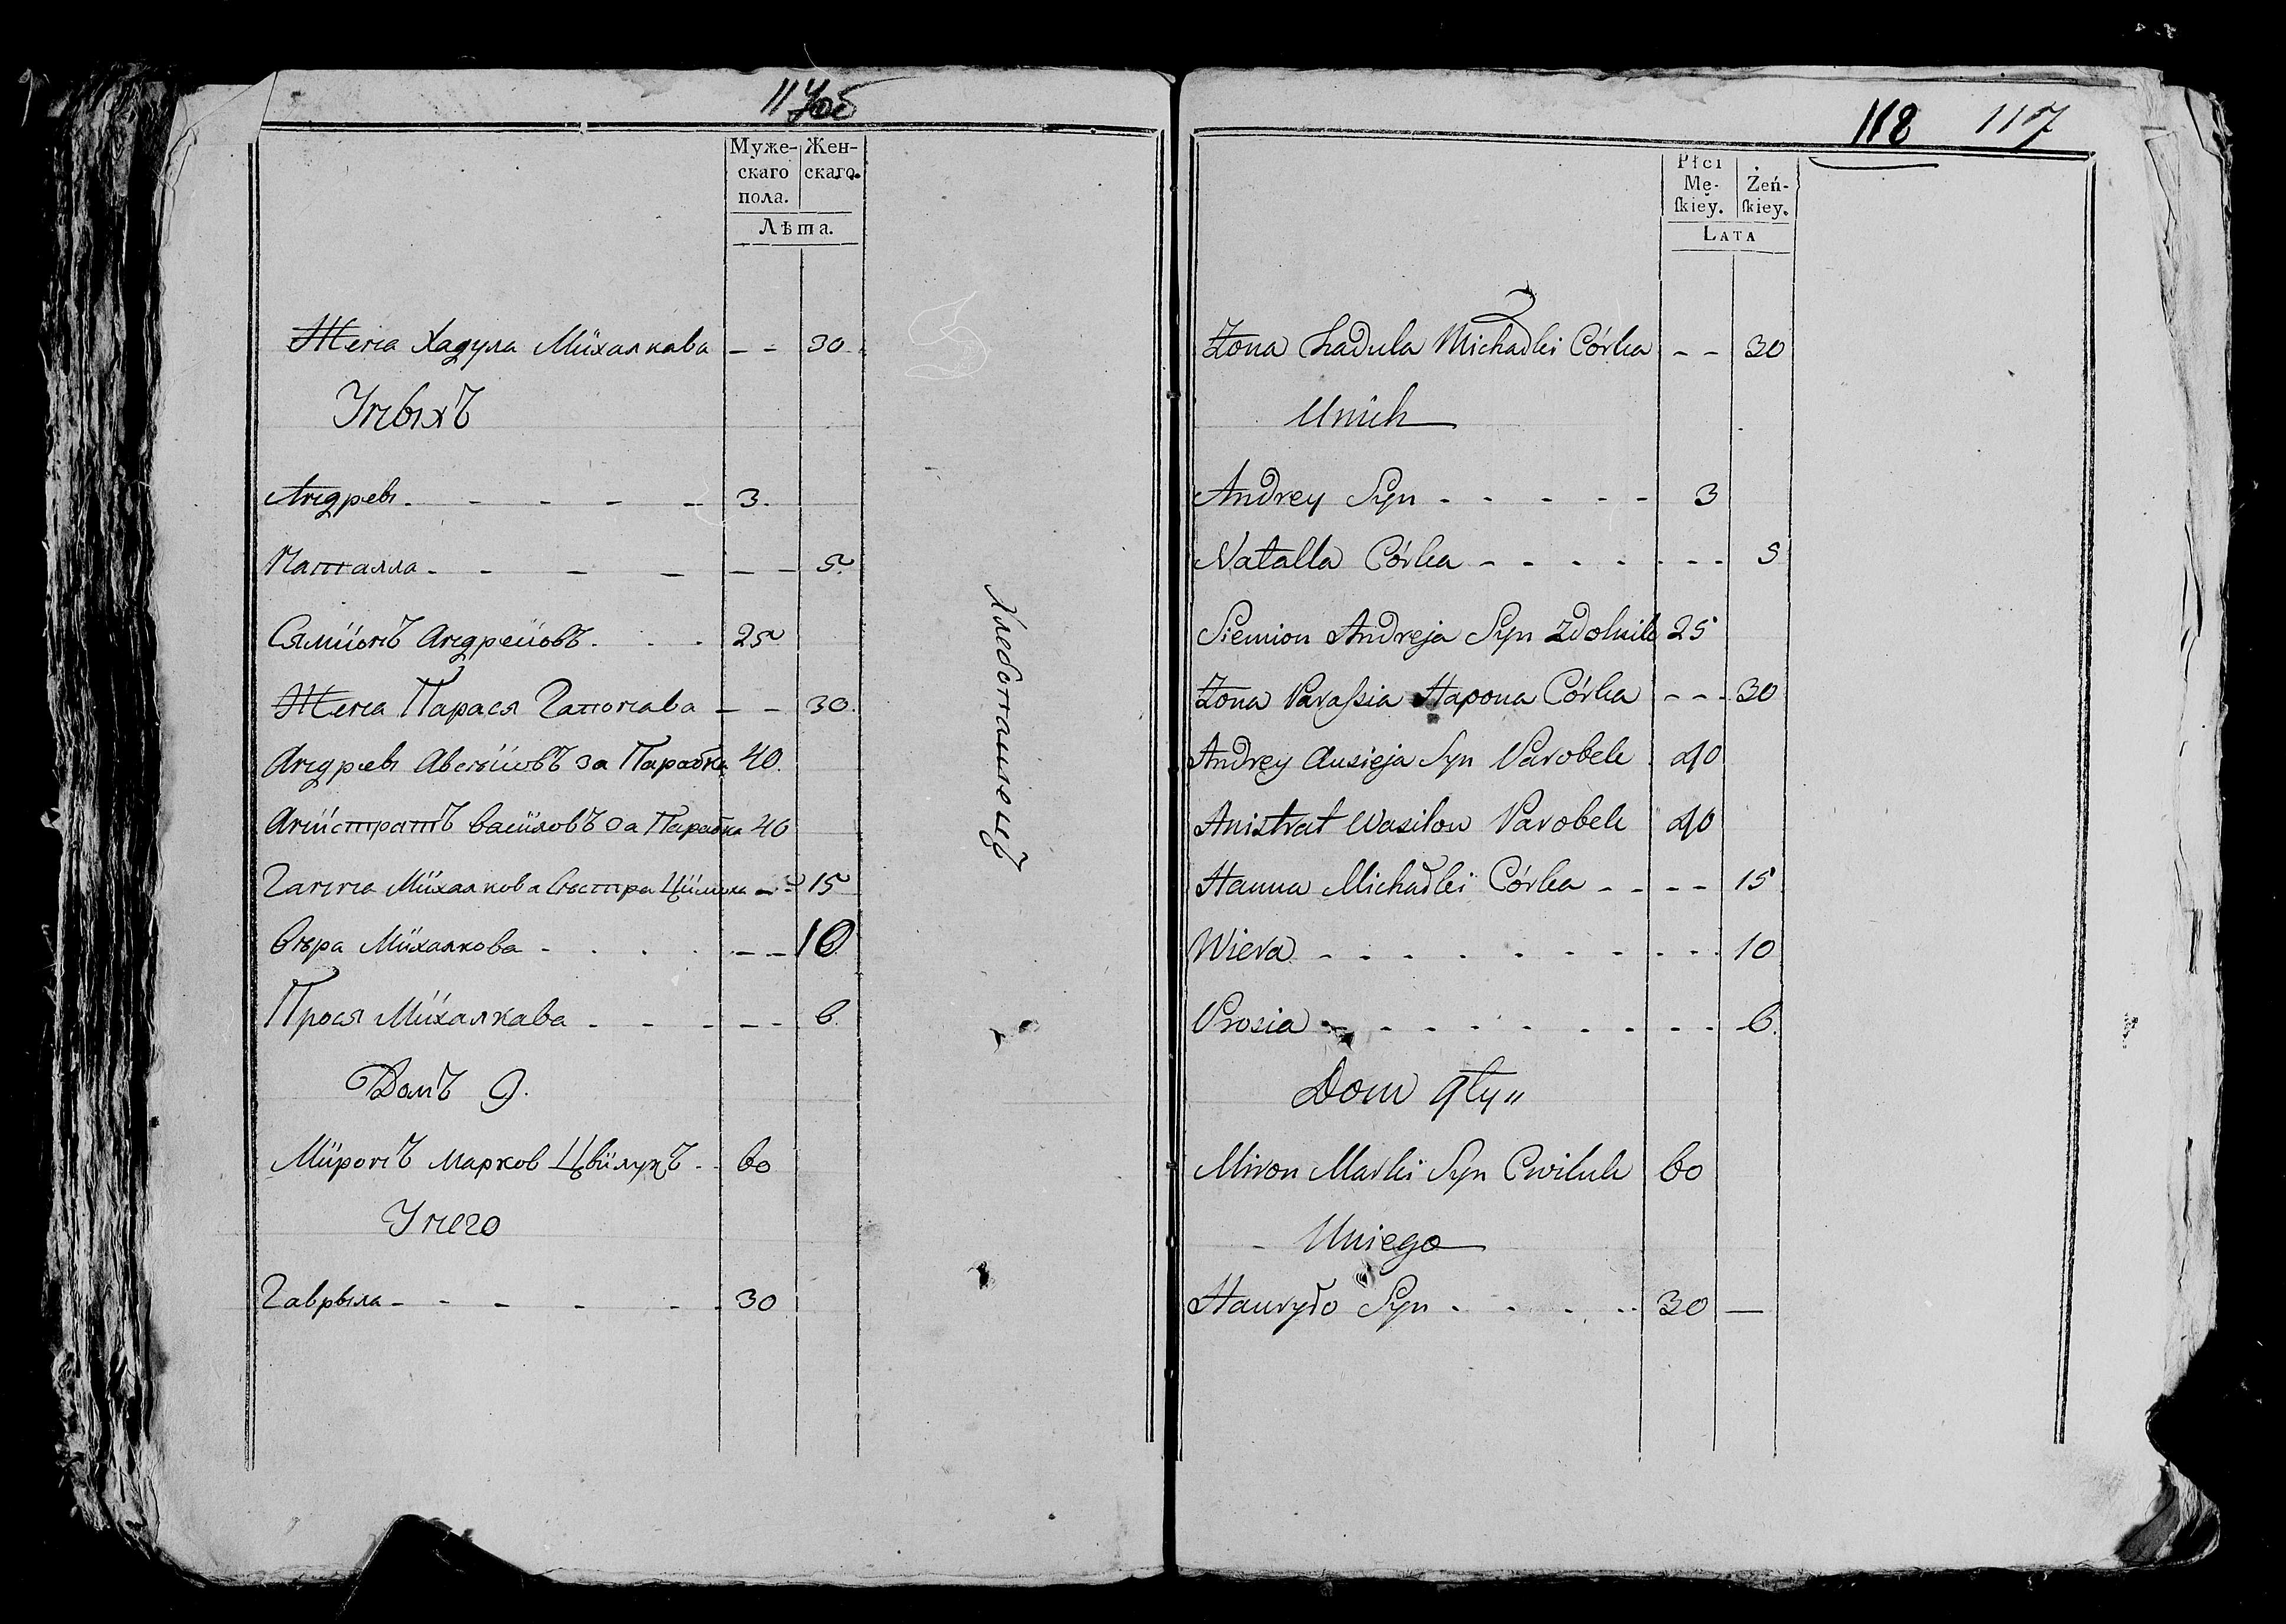 117об
Муже- Жен-
скаго скаго.
пола.
Лѣта.
Жена Хадула Михалкава - - 30
Унихъ
Андрей - - - - - 3.
Наталла - - - - - - 5
Сямионъ Андреиовъ . . . 25
Жена Парася Гапонава - - 30.
Андрей Авсѣиовъ за Парабка 40.
Анистратъ Василовъ за Парабка 40
Ганна Михалкова Сестра - - 15
Вѣра Михалкова - . . . - - 10
Прося Михалкава - - - - - 6.
Домъ 9.
Миронъ Марков Цвилукъ - - 60
Унего
Гаврыла - - - - - - 30
118 117
Płci
Mę- Żeń-
ſkiey. ſkiey.
LATA
Żona Hadula Michałki Córka - - 30
Unich
Andrey Syn - - - - - 3
Natalla Córka - - - - - - - - 5
Siemion Andreja Syn 25
Żona Paraſsia Hapona Córka - - - 30
Andrey Ausieja Syn Parobek 40
Anistrat Wasilow Parobek 40
Hanna Michałki Córka - - - - 15
Wiera - - - - - - - - - - 10
Prosia - - - - - - - - - - 6.
Dom 9ty"
Miron Marki Syn Cwiluk 60
Uniego
Hauryło Syn - - - - - 30 —